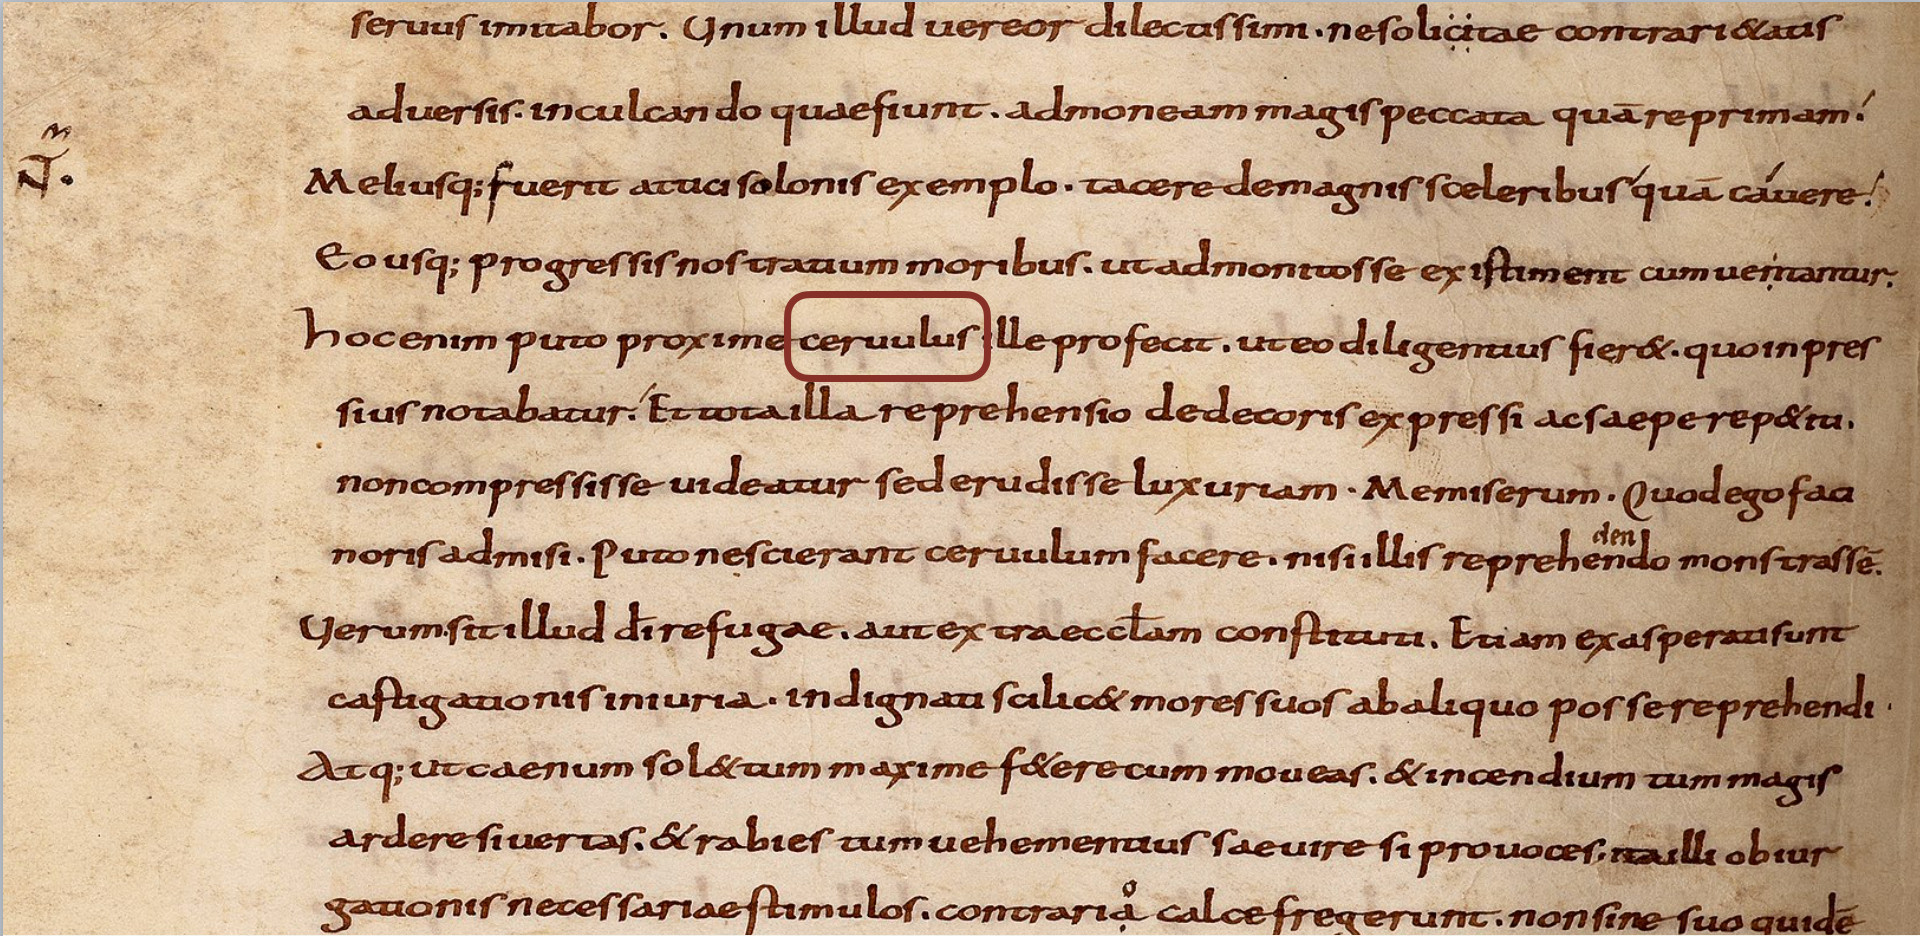 seruus imitabor. Unum illud uereor dilectissimi. ne solicitae contrari&atis
aduersis. inculcando quae fiunt. admoneam magis peccata quā reprimam.
Meliusq; fuerit attici solonis exemplo. tacere de magnis sceleribus quā cauere.
Eo usq; progressis nostratium moribus. ut admonitos se existiment cum ueritantur.
hoc enim puto proxime ceruulus ille profecit. ut eo diligentius fier&. quo inpres
sius notabatur. Et tota illa reprehensio dedecoris expressi ac saepe rep&iti.
non compressisse uideatur sed erudisse luxuriam. Me miserum. Quod ego faci
noris admisi. Puto nescierant ceruulum facere. nisi illis reprehendo monstrassē.
den
Uerum sit illud dī refugae. aut extra eccl̄am constituti. Etiam exasperati sunt
castigationis iniuria. indignati scilic& mores suos ab aliquo posse reprehendi.
Atq; ut caenum sol& tum maxime f&ere cum moueas. & incendium tum magis
ardere si uertas. & rabies tum uehementius saeuire si prouoces. ita illi obiur
gationis necessariae stimulos. contraria calce fregerunt. non sine suo quidē